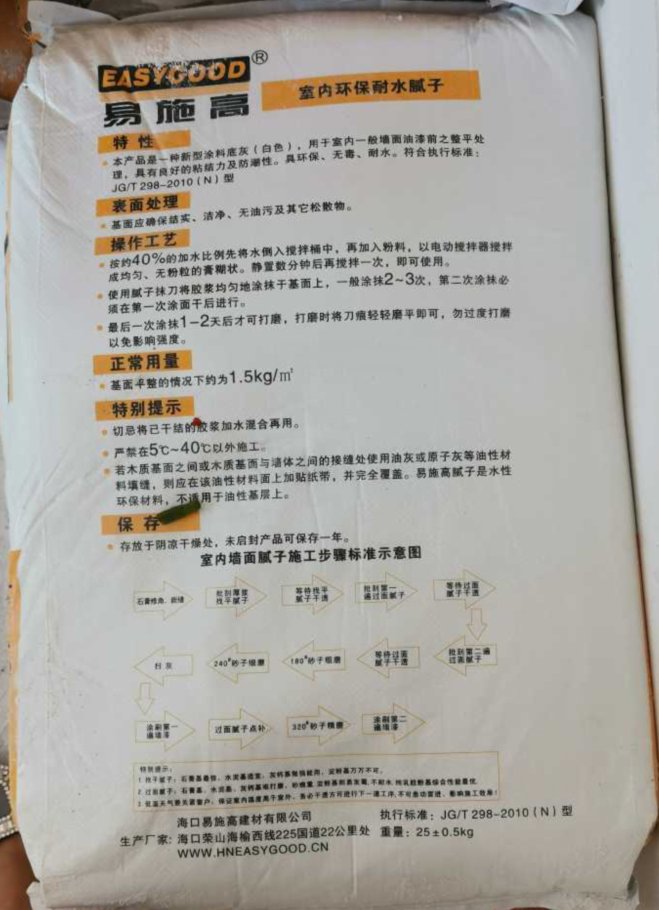 EASYGOOD®
易施高
室内环保耐水腻子
特性
本产品是一种新型涂料底灰(白色),用于室内一般墙面油漆前之整平处
理,具有良好的粘结力及防潮性。具环保、无毒、耐水。符合执行标准:
JG/T 298-2010(N)型
表面处理
基面应确保结实、洁净、无油污及其它松散物。
操作工艺
按约40%的加水比例先将水倒入搅拌桶中,再加入粉料,以电动搅拌器搅拌
成均匀、无粉粒的膏糊状。静置数分钟后再搅拌一次,即可使用。
使用腻子抹刀将胶浆均匀地涂抹于基面上,一般涂抹2~3次,第二次涂抹必
须在第一次涂面干后进行。
最后一次涂抹1-2天后才可打磨,打磨时将刀痕轻轻磨平即可,勿过度打磨
以免影响强度。
正常用量
基面平整的情况下约为1.5kg/㎡
特别提示
切忌将已干结的胶浆加水混合再用。
严禁在5℃~40℃以外施工。
若木质基面之间或木质基面与墙体之间的接缝处使用油灰或原子灰等油性材
料填缝,则应在该油性材料面上加贴纸带,并完全覆盖。易施高腻子是水性
环保材料,不适用于油性基层上。
保存
存放于阴凉干燥处,未启封产品可保存一年。
室内墙面腻子施工步骤标准示意图
石膏修角、嵌缝
批刮厚浆
找平腻子
等待找平
腻子干透
批刮第一
遍过面腻子
等待过面
腻子干透
批刮第二遍
过面腻子
等待过面
腻子干透
180#砂子粗磨
240#砂子细磨
扫灰
涂刷第一
遍墙漆
过面腻子点补
320#砂子精磨
涂刷第二
遍墙漆
特别提示:
1.找平腻子:石膏基最佳、水泥基适宜、灰钙基勉强能用、淀粉基万万不可。
2.过面腻子:石膏基、水泥基、灰钙基难打磨、
海口易施高建材有限公司
执行标准:JG/T 298-2010(N)型
生产厂家:海口荣山海榆西线225国道22公里处
重量:25±0.5kg
WWW.HNEASYGOOD.CN